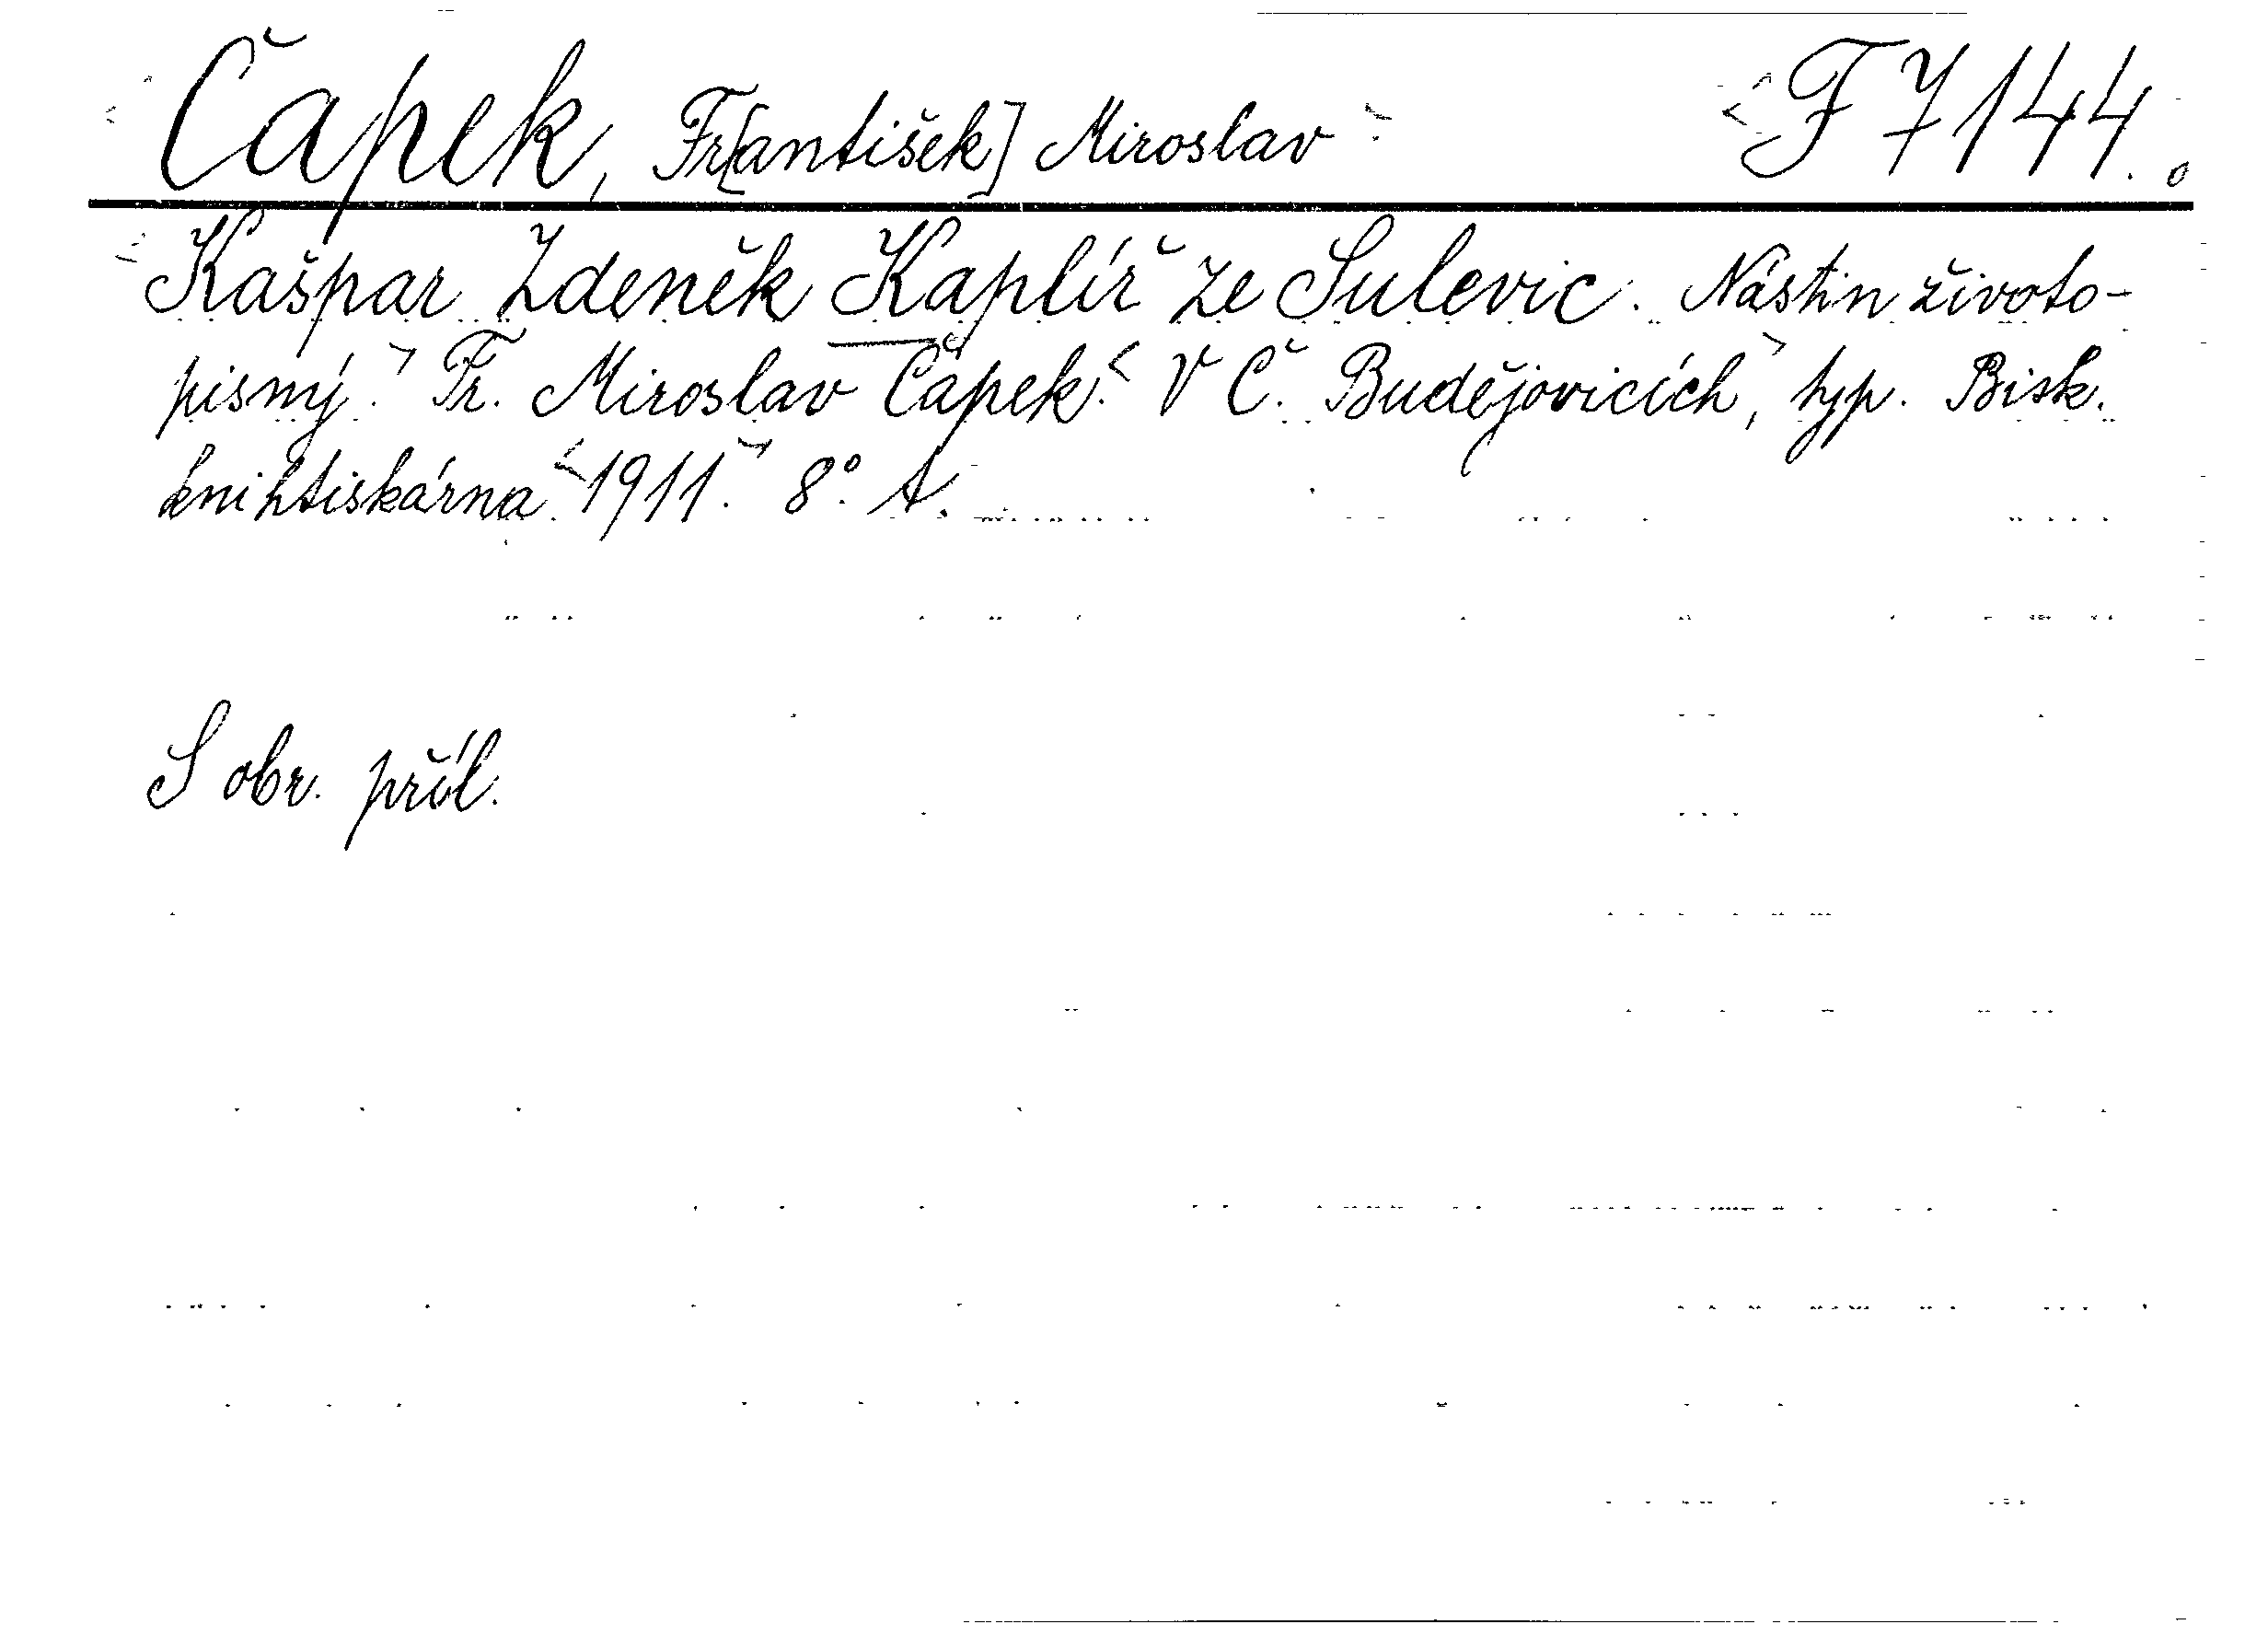 Čapek, Fr[antišek] Miroslav F 7144.
Kašpar Zdeněk Kaplíř ze Sulevic. Nástin životo-
pisný. Fr. Miroslav Čapek. V Č. Budějovicích, typ. Bisk.
knihtiskárna 1911. 8°. A.
S obr. příl.